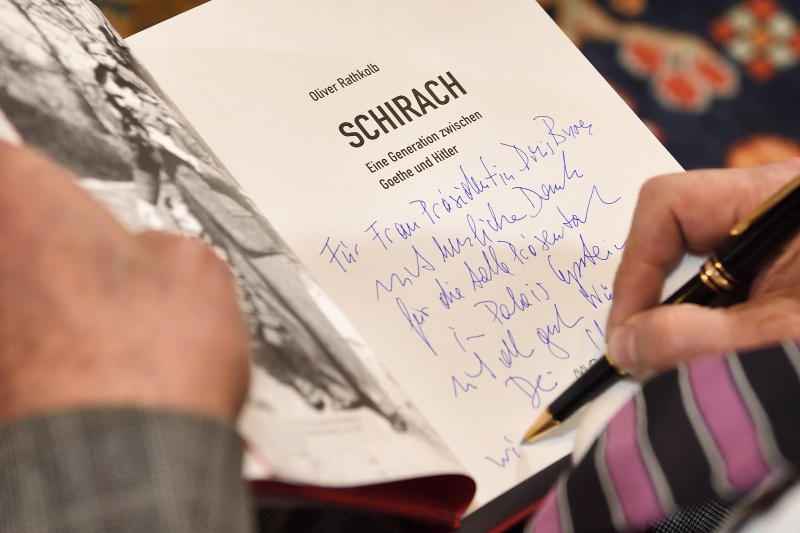 Oliver Rathkolb
SCHIRACH
Eine Generation zwischen
Goethe und Hitler
Für Frau Präsidentin Doris Bures
mit herzlichem Dank
für die tolle Präsentat
im Palais Epstein
mit all gut
Dei
Wi